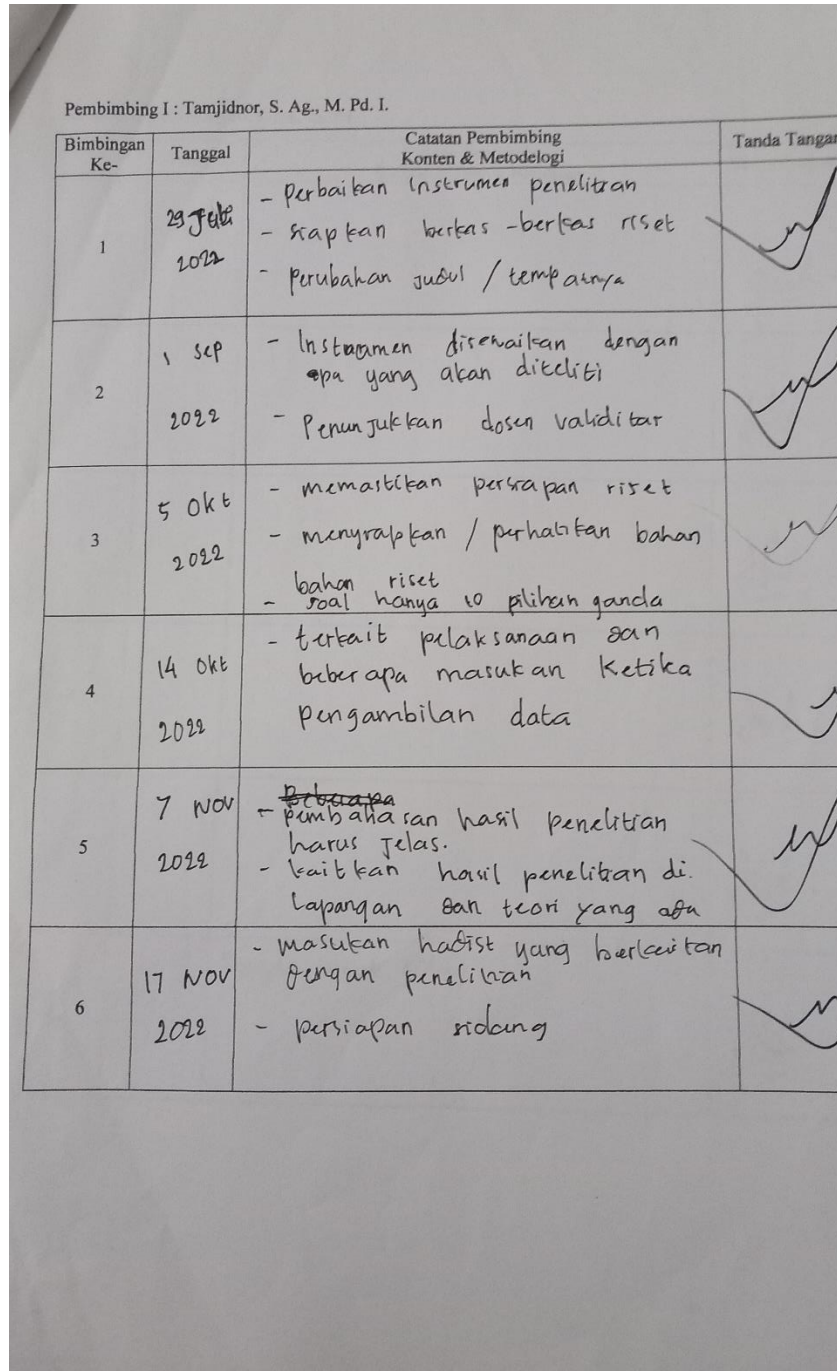 Pembimbing I : Tamjidnor, S. Ag., M. Pd. I.
Bimbingan Ke-
Tanggal
Catatan Pembimbing
Konten & Metodelogi
Tanda Tangan
1
29 Juli
2022
- Perbaikan Instrumen penelitian
- siapkan berkas-berkas riset
- perubahan judul / tempatnya
2
1 sep
2022
- Instrumen disesuaikan dengan
apa yang akan diteliti
- Penunjukkan dosen validitas
3
5 Okt
2022
- memastikan persiapan riset
- menyiapkan / perhatikan bahan
bahan riset
- soal hanya 10 pilihan ganda
4
14 Okt
2022
- terkait pelaksanaan dan
beberapa masukan ketika
pengambilan data
5
7 NOV
2022
- pembahasan hasil penelitian
harus jelas.
- kaitkan hasil penelitian di
lapangan dan teori yang ada
6
17 NOV
2022
- masukan hadist yang berkaitan
dengan penelitian
- persiapan sidang